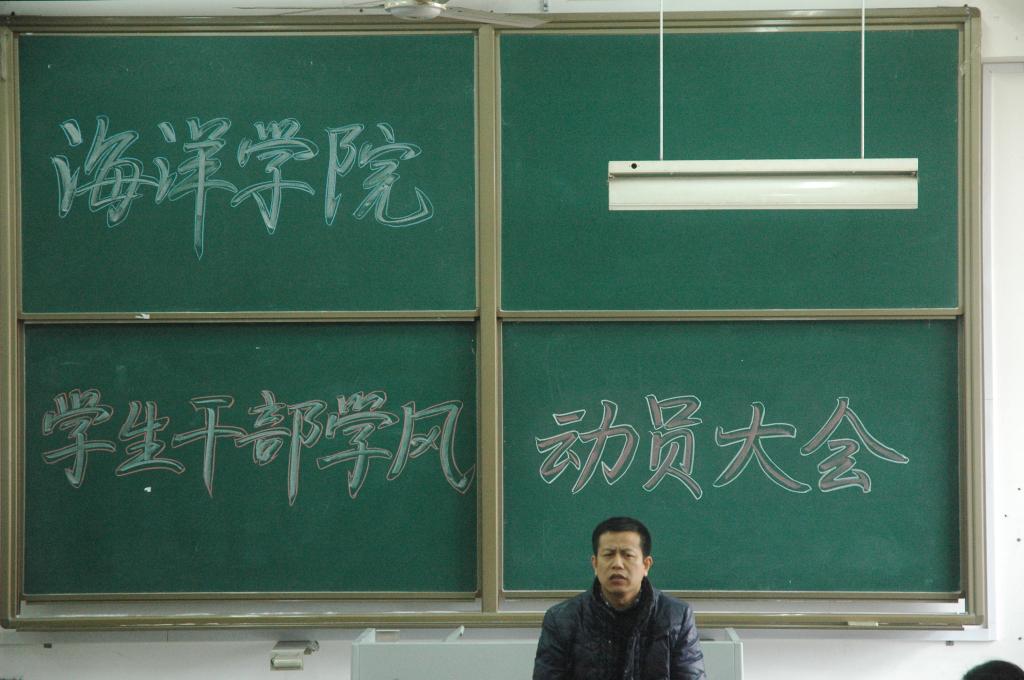 海洋学院
学生干部学风动员大会